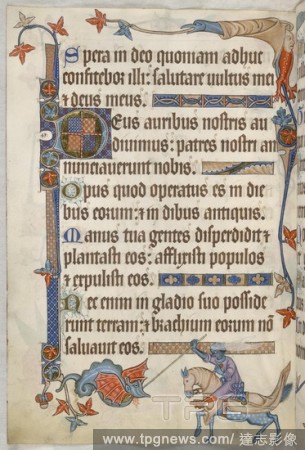 Spera in deo quoniam adhuc
confitebor illi: salutare uultus mei
⁊ deus meus.
Deus auribus nostris au
diuimus: patres nostri an
nunciauerunt nobis.
Opus quod operatus es in die
bus eorum: ⁊ in dibus antiquis.
Manus tua gentes disperdidit ⁊
plantasti eos: afflixisti populos
⁊ expulisti eos.
Nec enim in gladio suo posside
runt terram: ⁊ brachium eorum nō
saluauit eos.
TPG
www.tpgnews.com/ 達志影像